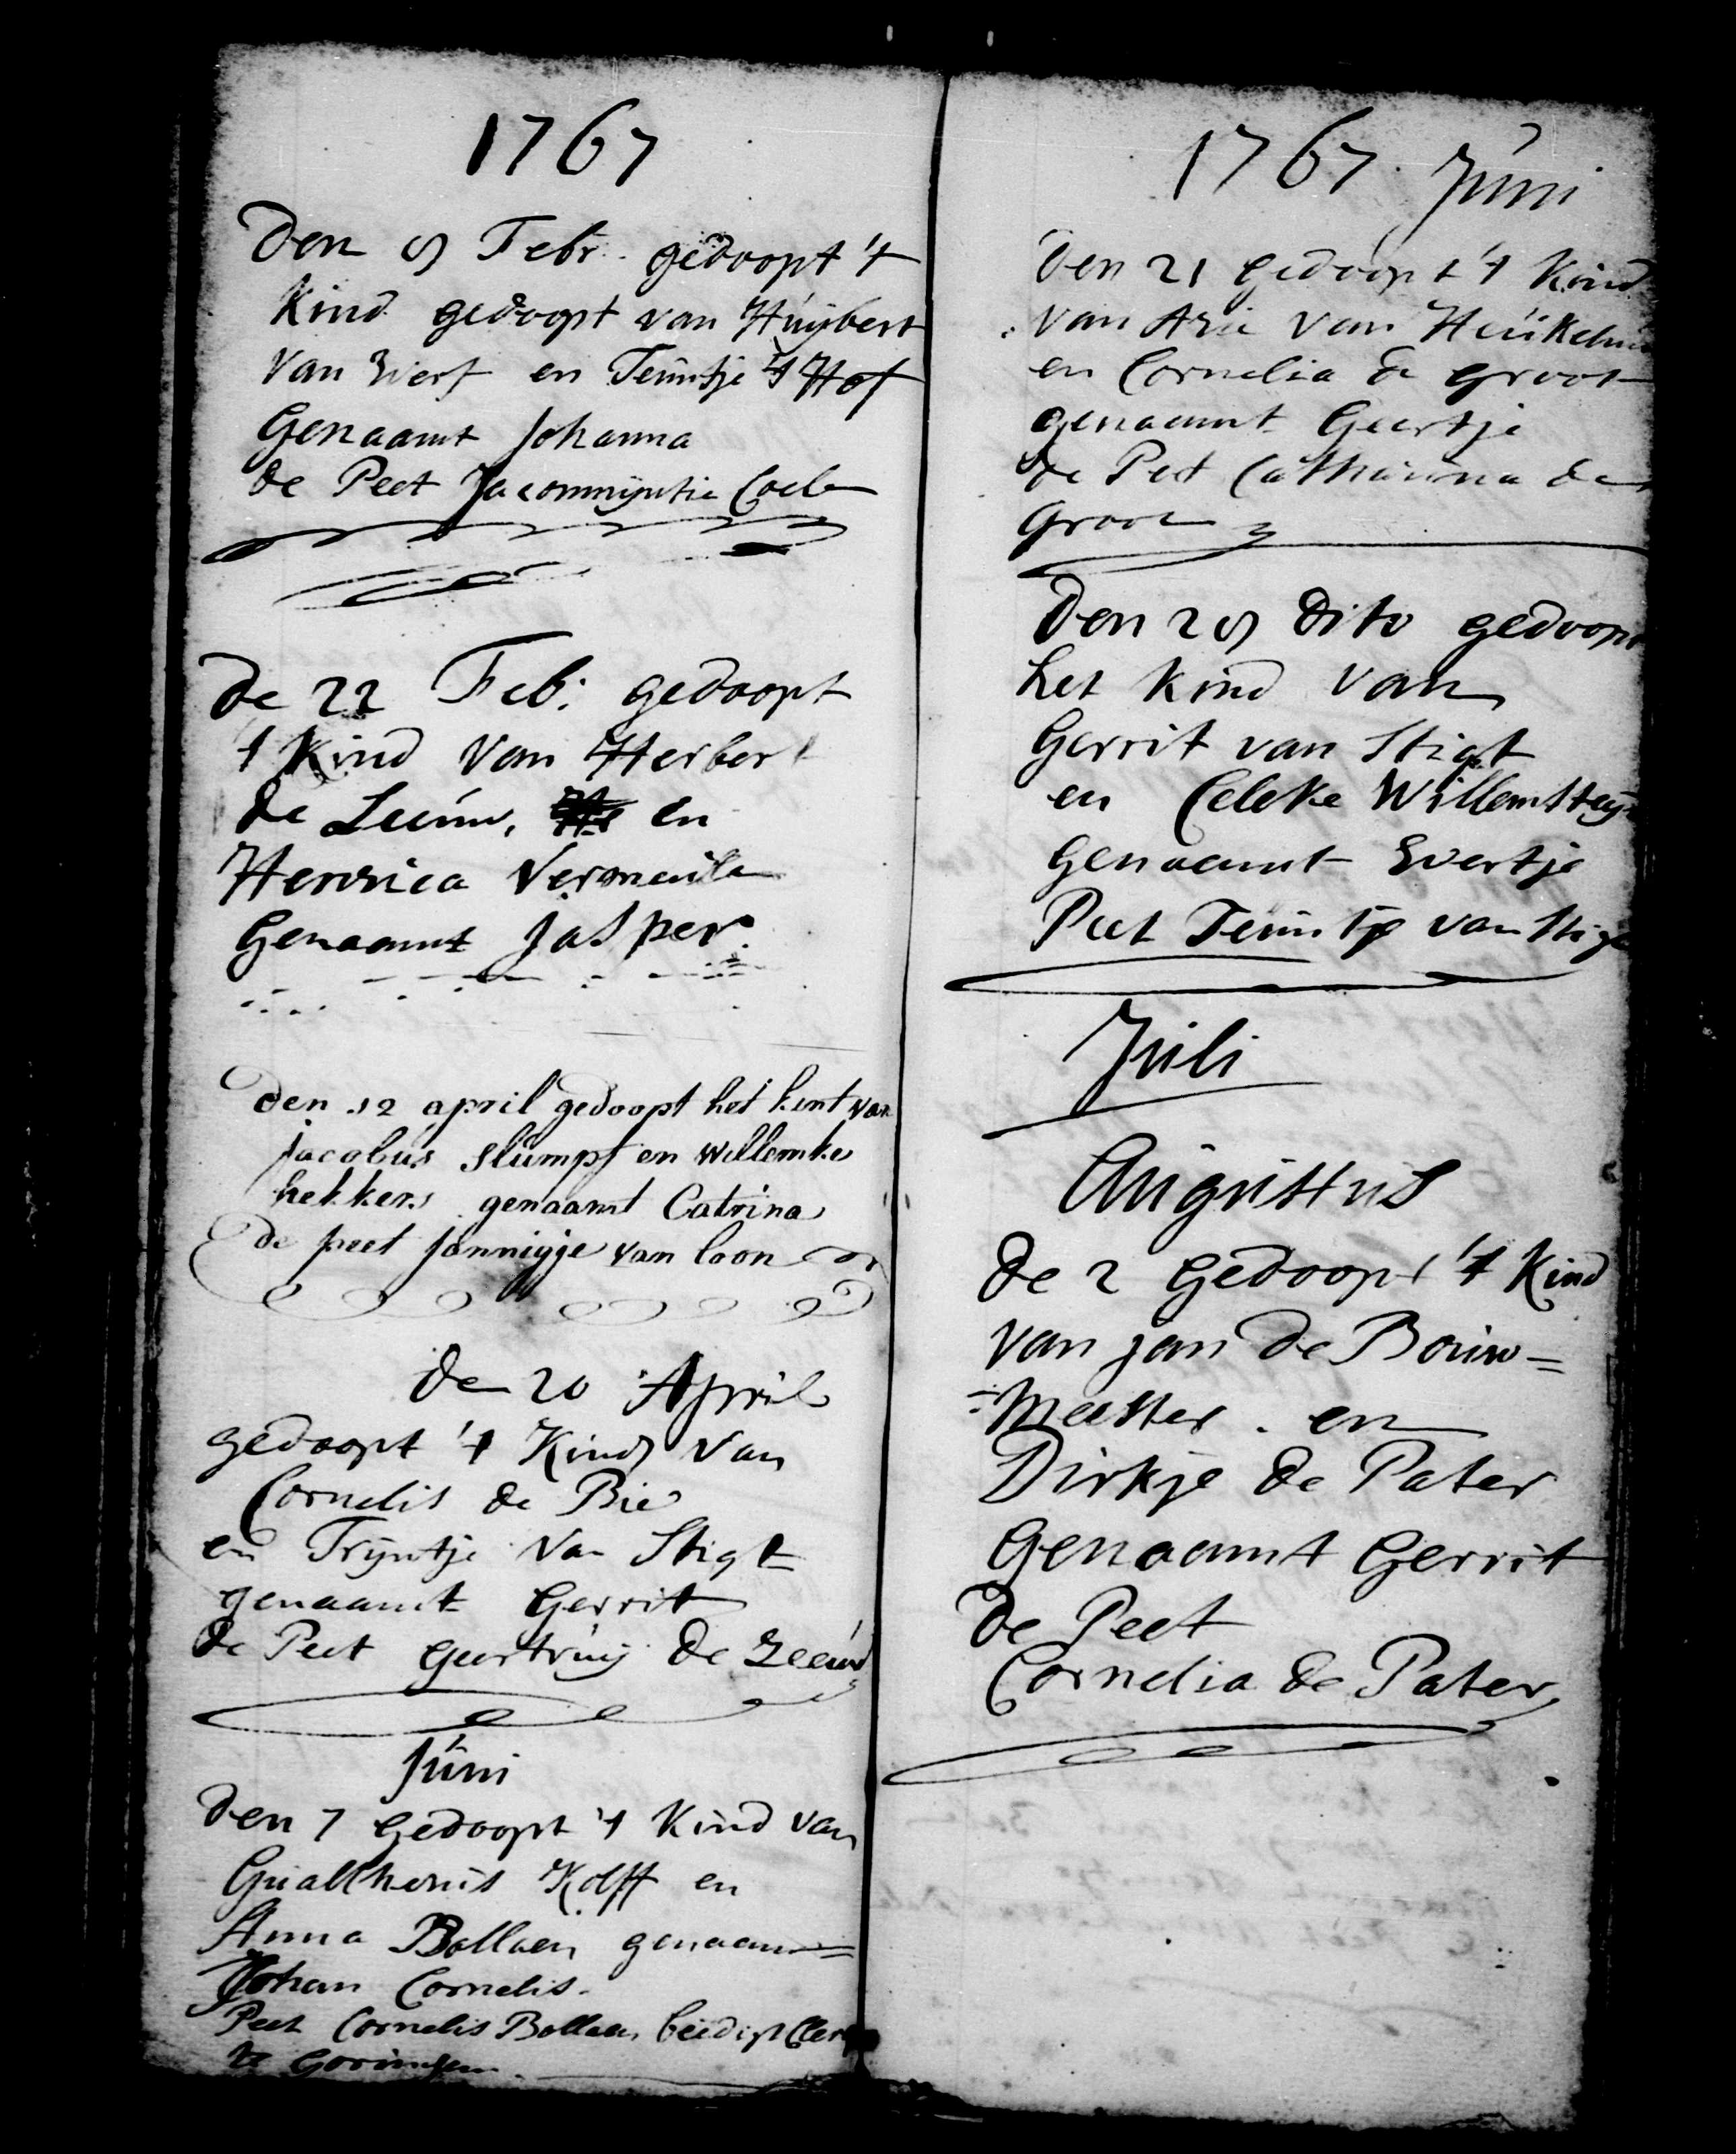 1767
Den 9 Febr. gedoopt 't
Kind gedoopt van Huijbert
Van Everf en Teuntje 't Hof
Genaamt Johanna
de Peet Jacommijntie
de 22 Feb: gedoopt
't Kind Van Herbert
de Leeuw, en
Henrica Vermeule
Genaamt Jasper.
den 12 april gedoopt het kint van
jacobus Slumpf en willemke
hekkers genaamt Catrina
de peet jannigje van loon
de 20 April
gedoopt 't Kind Van
Cornelis de Bie
en Trijntje Van Stigt
genaamt Gerrit
de Peet geertruij de Leeuw
Juni
Den 7 gedoopt 't Kind van
Gualtherus Kolff en
Anna Bollaen genaam=
Johan Cornelis.
Peet Cornelis Bollaen beedigt Clerq
te Gorinchem.
1767. Juni
Den 21 gedoopt 't Kind
van Arie van Heukelum
en Cornelia de groot
genaamt Geertje
de Peet Catharina de
Groot
Den 29 dito gedoopt
het kind van
Gerrit van Stigt
en Celeke Willemsteijn
Genaamt Evertje
Peet Teuntje van Stigt
Juli
Augustus
de 2 Gedoopt 't Kind
van jan de Bouw=
=Meester. en
Dirkje de Pater
Genaamt Gerrit
de Peet
Cornelia de Pater